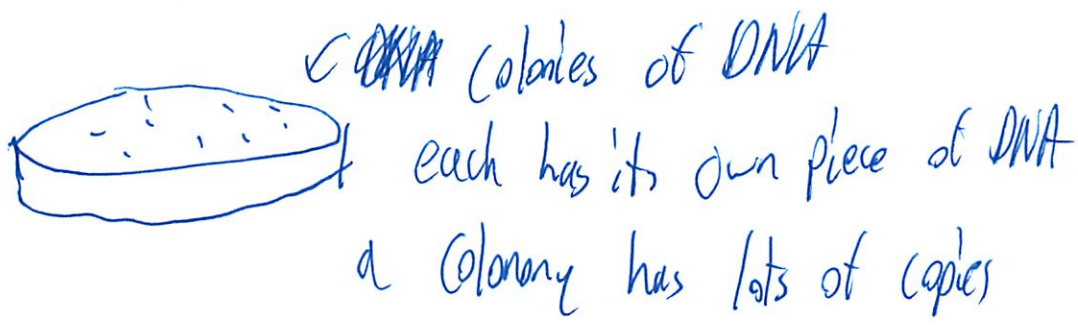 colonies of DNA
each has its own piece of DNA
a colonony has lots of copies